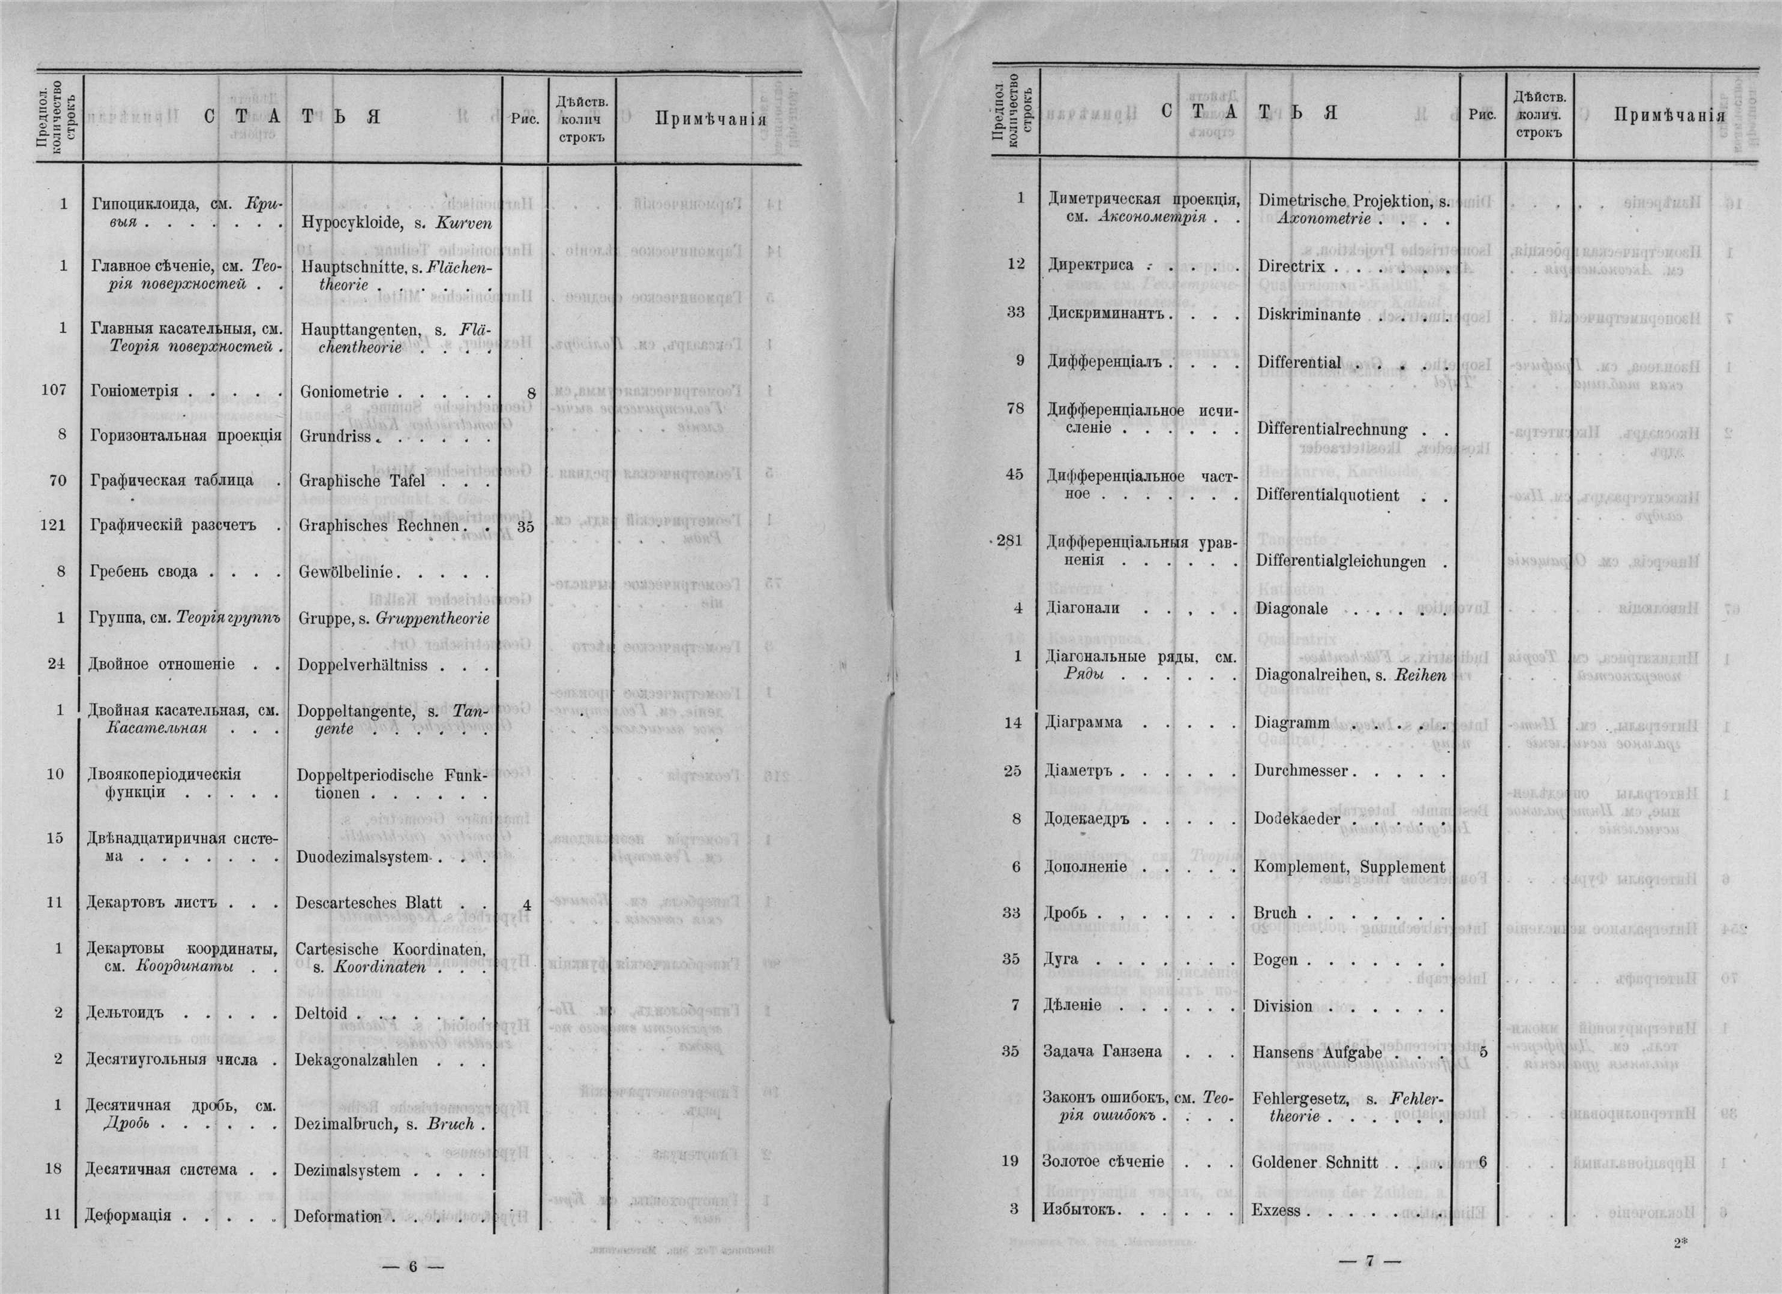 Предпол. количество строкъ
СТАТЬЯ
Рис.
Дѣйств. колич строкъ
Примѣчанія
1 Гипоциклоида, см. Кри-
выя . . . . . . . Hypocykloide, s. Kurven
1 Главное сѣченіе, см. Тео- Hauptschnitte, s. Flächen-
рія поверхностей . . theorie . . . . . .
1 Главныя касательныя, см. Haupttangenten, s. Flä-
Теорія поверхностей . chentheorie . . . .
107 Гоніометрія . . . . . Goniometrie . . . . . 8
8 Горизонтальная проекція Grundriss . . . . . .
70 Графическая таблица . Graphische Tafel . . .
121 Графическій разсчетъ . Graphisches Rechnen . . 35
8 Гребень свода . . . . Gewölbelinie . . . . .
1 Группа, см. Теорія группъ Gruppe, s. Gruppentheorie
24 Двойное отношеніе . . Doppelverhältniss . . .
1 Двойная касательная, см. Doppeltangente, s. Tan-
Касательная . . . gente . . . . . .
10 Двоякоперіодическія Doppeltperiodische Funk-
функціи . . . . . tionen . . . . . .
15 Двѣнадцатиричная систе-
ма . . . . . . . Duodezimalsystem . . .
11 Декартовъ листъ . . . Descartesches Blatt . . 4
1 Декартовы координаты, Cartesische Koordinaten,
см. Координаты . . s. Koordinaten . . .
2 Дельтоидъ . . . . . Deltoid . . . . . . .
2 Десятиугольныя числа . Dekagonalzahlen . . .
1 Десятичная дробь, см.
Дробь . . . . . . Dezimalbruch, s. Bruch .
18 Десятичная система . . Dezimalsystem . . . .
11 Деформація . . . . . Deformation . . . . .
— 6 —
Предпол количество строкъ
СТАТЬЯ
Рис.
Дѣйств. колич. строкъ
Примѣчанія
1 Диметрическая проекція, Dimetrische Projektion, s.
см. Аксонометрія . . Axonometrie . . . .
12 Директриса . . . . . Directrix . . . . . .
33 Дискриминантъ . . . . Diskriminante . . . .
9 Дифференціалъ . . . . Differential . . . . .
78 Дифференціальное исчи-
сленіе . . . . . . Differentialrechnung . .
45 Дифференціальное част-
ное . . . . . . . Differentialquotient . .
281 Дифференціальныя урав-
ненія . . . . . . Differentialgleichungen .
4 Діагонали . . . . . Diagonale . . . . .
1 Діагональные ряды, см.
Ряды . . . . . . Diagonalreihen, s. Reihen
14 Діаграмма . . . . . Diagramm . . . . .
25 Діаметръ . . . . . . Durchmesser . . . . .
8 Додекаедръ . . . . . Dodekaeder . . . . .
6 Дополненіе . . . . . Komplement, Supplement
33 Дробь . . . . . . . Bruch . . . . . . .
35 Дуга . . . . . . . Bogen . . . . . . .
7 Дѣленіе . . . . . . Division . . . . . .
35 Задача Ганзена . . . Hansens Aufgabe . . . 5
Законъ ошибокъ, см. Тео- Fehlergesetz, s. Fehler-
рія ошибокъ . . . . theorie . . . . . .
19 Золотое сѣченіе . . . Goldener Schnitt . . . 6
3 Избытокъ . . . . . . Exzess . . . . . . .
2*
— 7 —